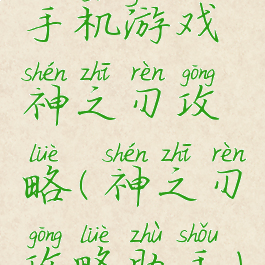 手机游戏
shén zhī rèn gōng
神之刃攻
lüè shén zhī rèn
略(神之刃
gōng lüè zhù shǒu
攻略助手)